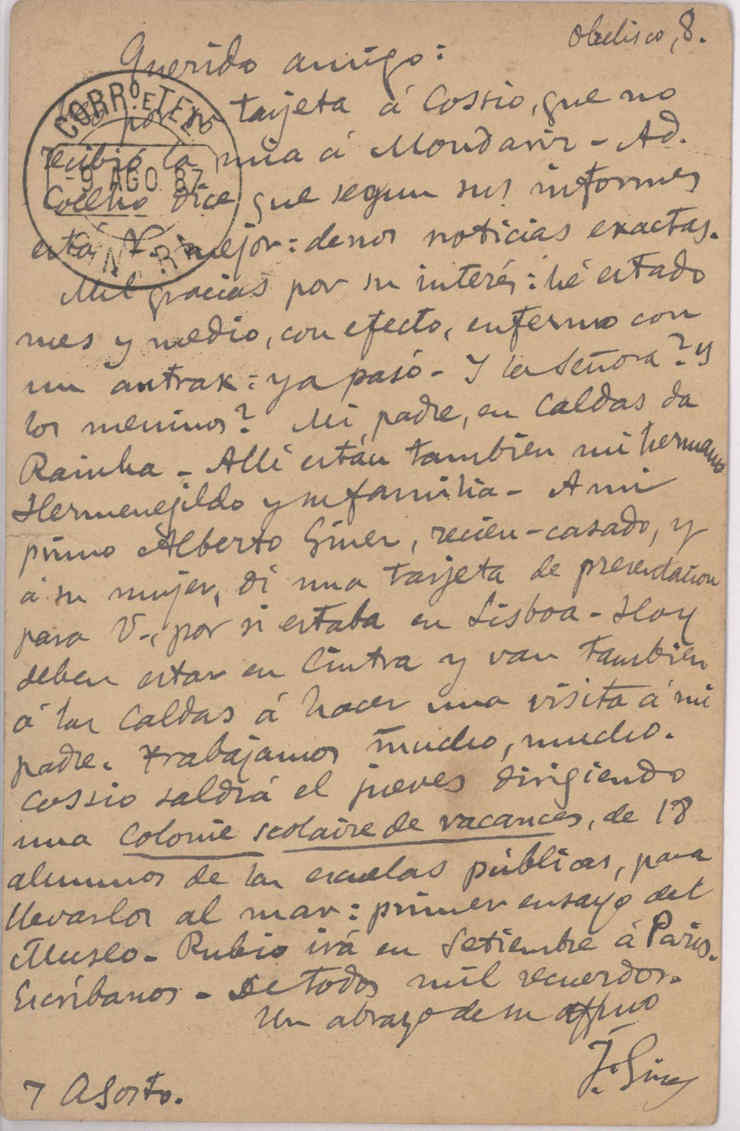 Obelisco, 8.
Querido amigo:
por tarjeta á Cossio, que no
recibió la mia á Mondariz - Ad.
Coelho dice que segun sus informes
está V. mejor: denos noticias exactas.
Mil gracias por su interés: hé estado
mes y medio, con efecto, enfermo con
un antrax: ya pasó - Y la Señora? y
los meninos? Mi padre, en Caldas da
Rainha - Allí están tambien mi hermano
Hermenejildo y su familia - A mi
primo Alberto Giner, recien-casado, y
á su mujer, di una tarjeta de presentacion
para V., por si estaba en Lisboa - Hoy
deben estar en Cintra y van tambien
á las Caldas á hacer una visita á mi
padre. Trabajamos mucho, mucho.
Cossio saldrá el jueves dirigiendo
una Colonie scolaire de vacances, de 18
alumnos de las escuelas públicas, para
llevarlos al mar: primer ensayo del
Museo - Rubio irá en Setiembre á Paris.
Escríbanos - De todos mil recuerdos.
Un abrazo de su affmo
F. Giner
7 Agosto.
CORRO. E TELO.
9 AGO 87
CINTRA